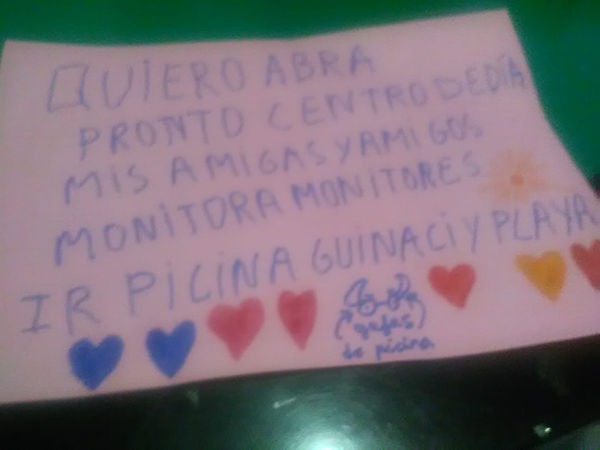 QUIERO ABRA
PRONTO CENTRO DE DÍA
MIS AMIGAS Y AMIGOS
MONITORA MONITORES
IR PICINA GUINACI Y PLAYA
(gafas)
de picina